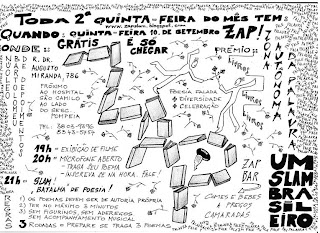 TODA 2ª QUINTA-FEIRA DO MÊS TEM:
www.zapslam.blogspot.com
QUANDO: QUINTA-FEIRA 10 DE SETEMBRO
ZAP!
GRÁTIS
É SÓ CHEGAR
PRÊMIO:
Livros
Livros
Livros
ZONA AUTÔNOMA DA PALAVRA
ONDE:
NÚCLEO
BARTOLOMEU
DE DEPOIMENTOS
R. DR. AUGUSTO MIRANDA, 786
PRÓXIMO
AO HOSPITAL
SÃO CAMILO
AO LADO
DO SESC
POMPEIA
POESIA FALADA
+ DIVERSIDADE
+ CELEBRAÇÃO
19H → EXIBIÇÃO DE FILME
20H → MICROFONE ABERTO
TRAGA SEU POEMA
INSCREVA-SE NA HORA. FALE!
21H → SLAM:
BATALHA DE POESIA!
ZAP BAR
COMES E BEBES
A PREÇOS
CAMARADAS
UM
SLAM
BRA
SIL
EIRO
REGRAS
1) OS POEMAS DEVEM SER DE AUTORIA PRÓPRIA
2) TER NO MÁXIMO 3 MINUTOS
3) SEM FIGURINOS, SEM ADEREÇOS
SEM ACOMPANHAMENTO MUSICAL
3 RODADAS = PREPARE-SE TRAGA 3 POEMAS